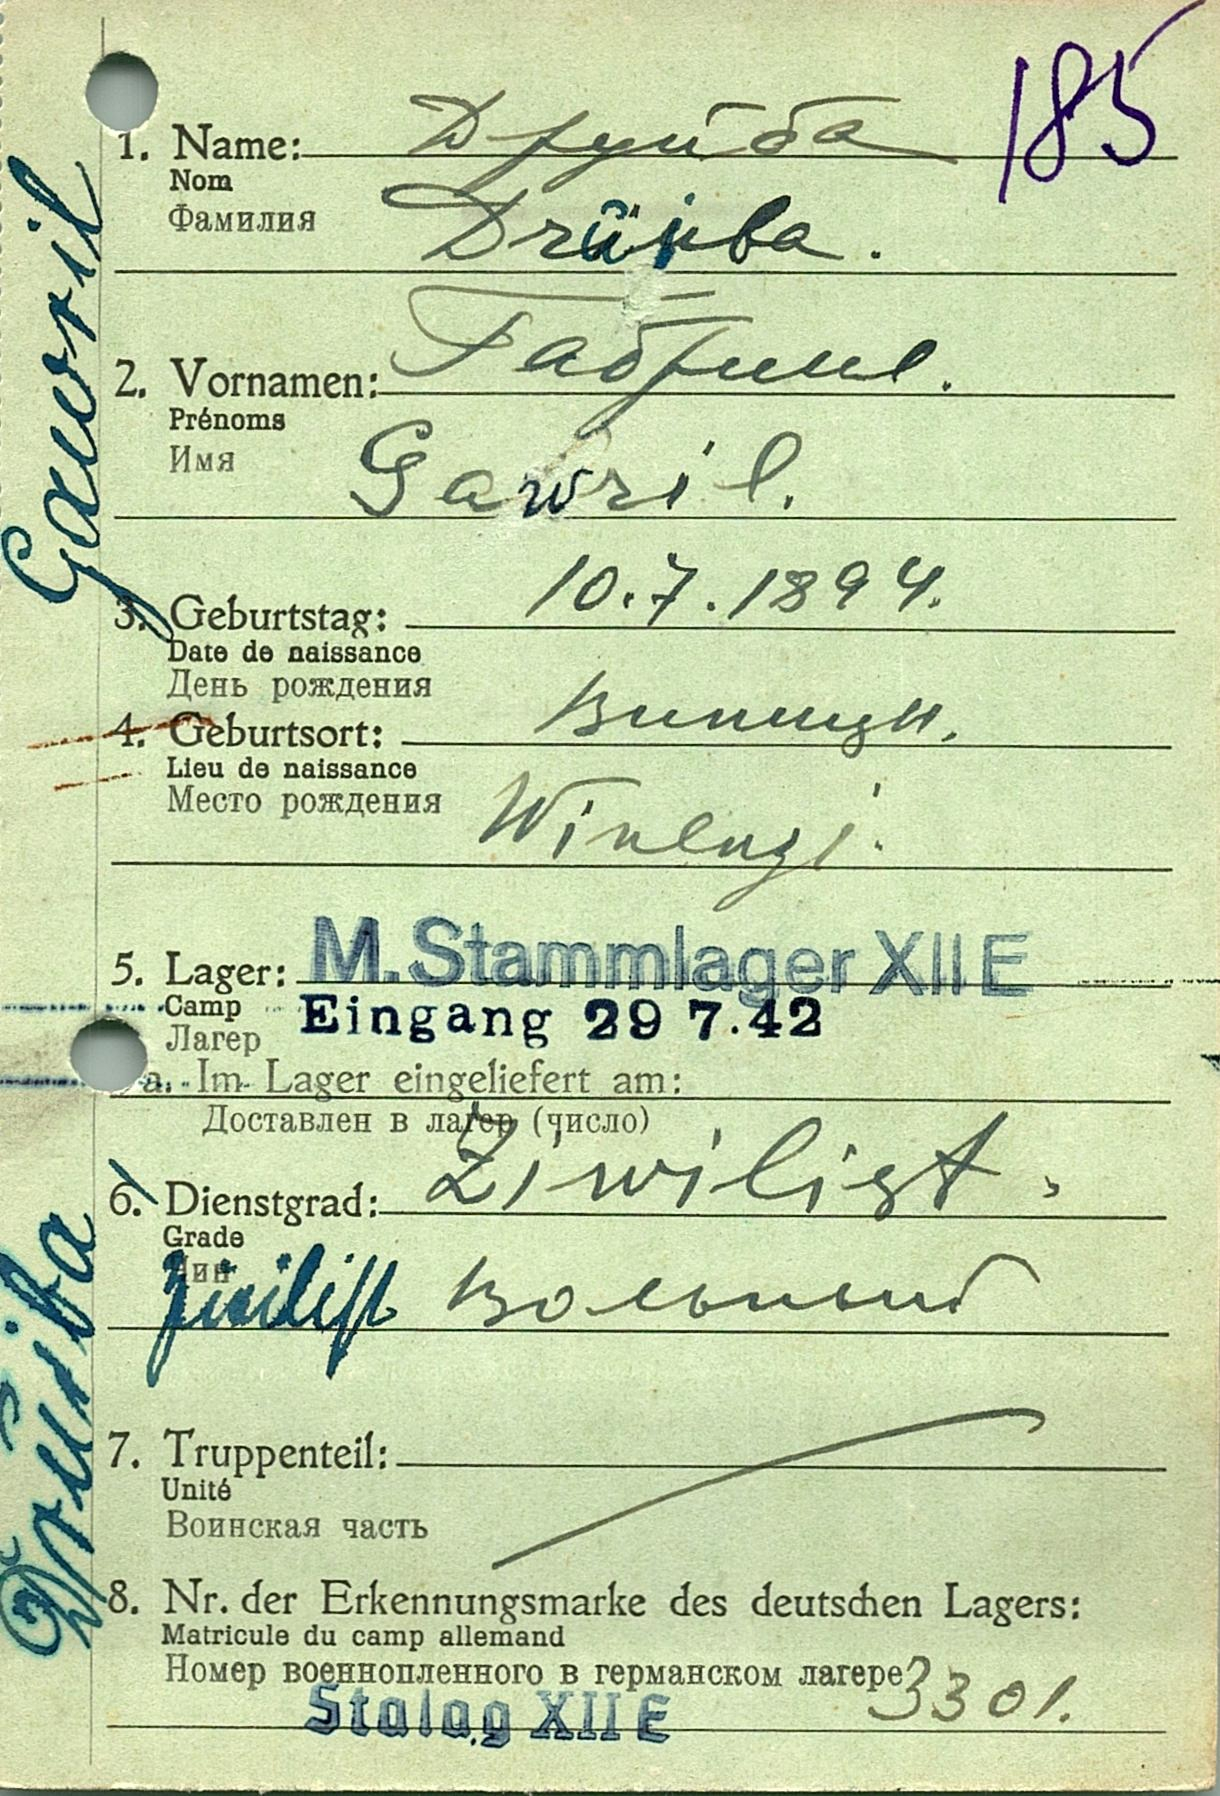 185
1. Name: Друйба
Nom
Фамилия
Drüiba.
2. Vornamen: Габриил.
Prénoms
Имя
Gawril.
3. Geburtstag: 10.7.1894.
Date de naissance
День рождения
4. Geburtsort:
Lieu de naissance
Место рождения
5. Lager: M. Stammlager XII E
Camp
Лагер
Eingang 29 7.42
a. Im Lager eingeliefert am:
Доставлен в лагер (число)
6. Dienstgrad: Ziwilist.
Grade
Чин
Zivilist Вольный
7. Truppenteil:
Unité
Воинская часть
8. Nr. der Erkennungsmarke des deutschen Lagers:
Matricule du camp allemand
Номер военнопленного в германском лагере 3301.
Stalag XII E
Gawril
Drüiba